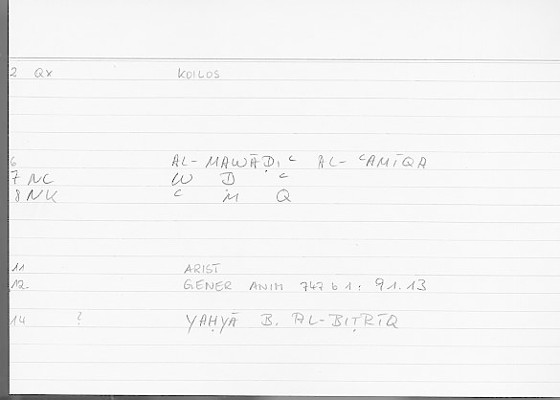 2 QX KOILOS
6 AL-MAWĀḌIʿ AL-ʿAMĪQA
7 NC W Ḍ ʿ
8 NK ʿ M Q
11 ARIST
12 GENER ANIM 747 b 1 : 91.13
14 ? YAḤYĀ B. AL-BIṬRĪQ